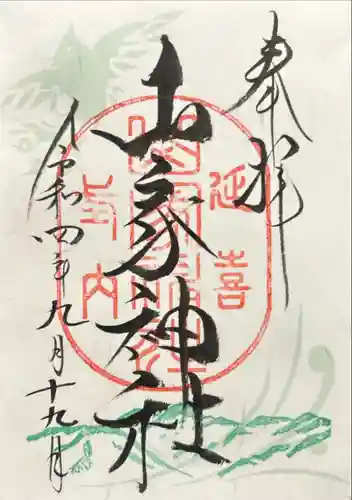 奉拝
延喜
山家神社
式内
山家神社
令和四年九月十九日